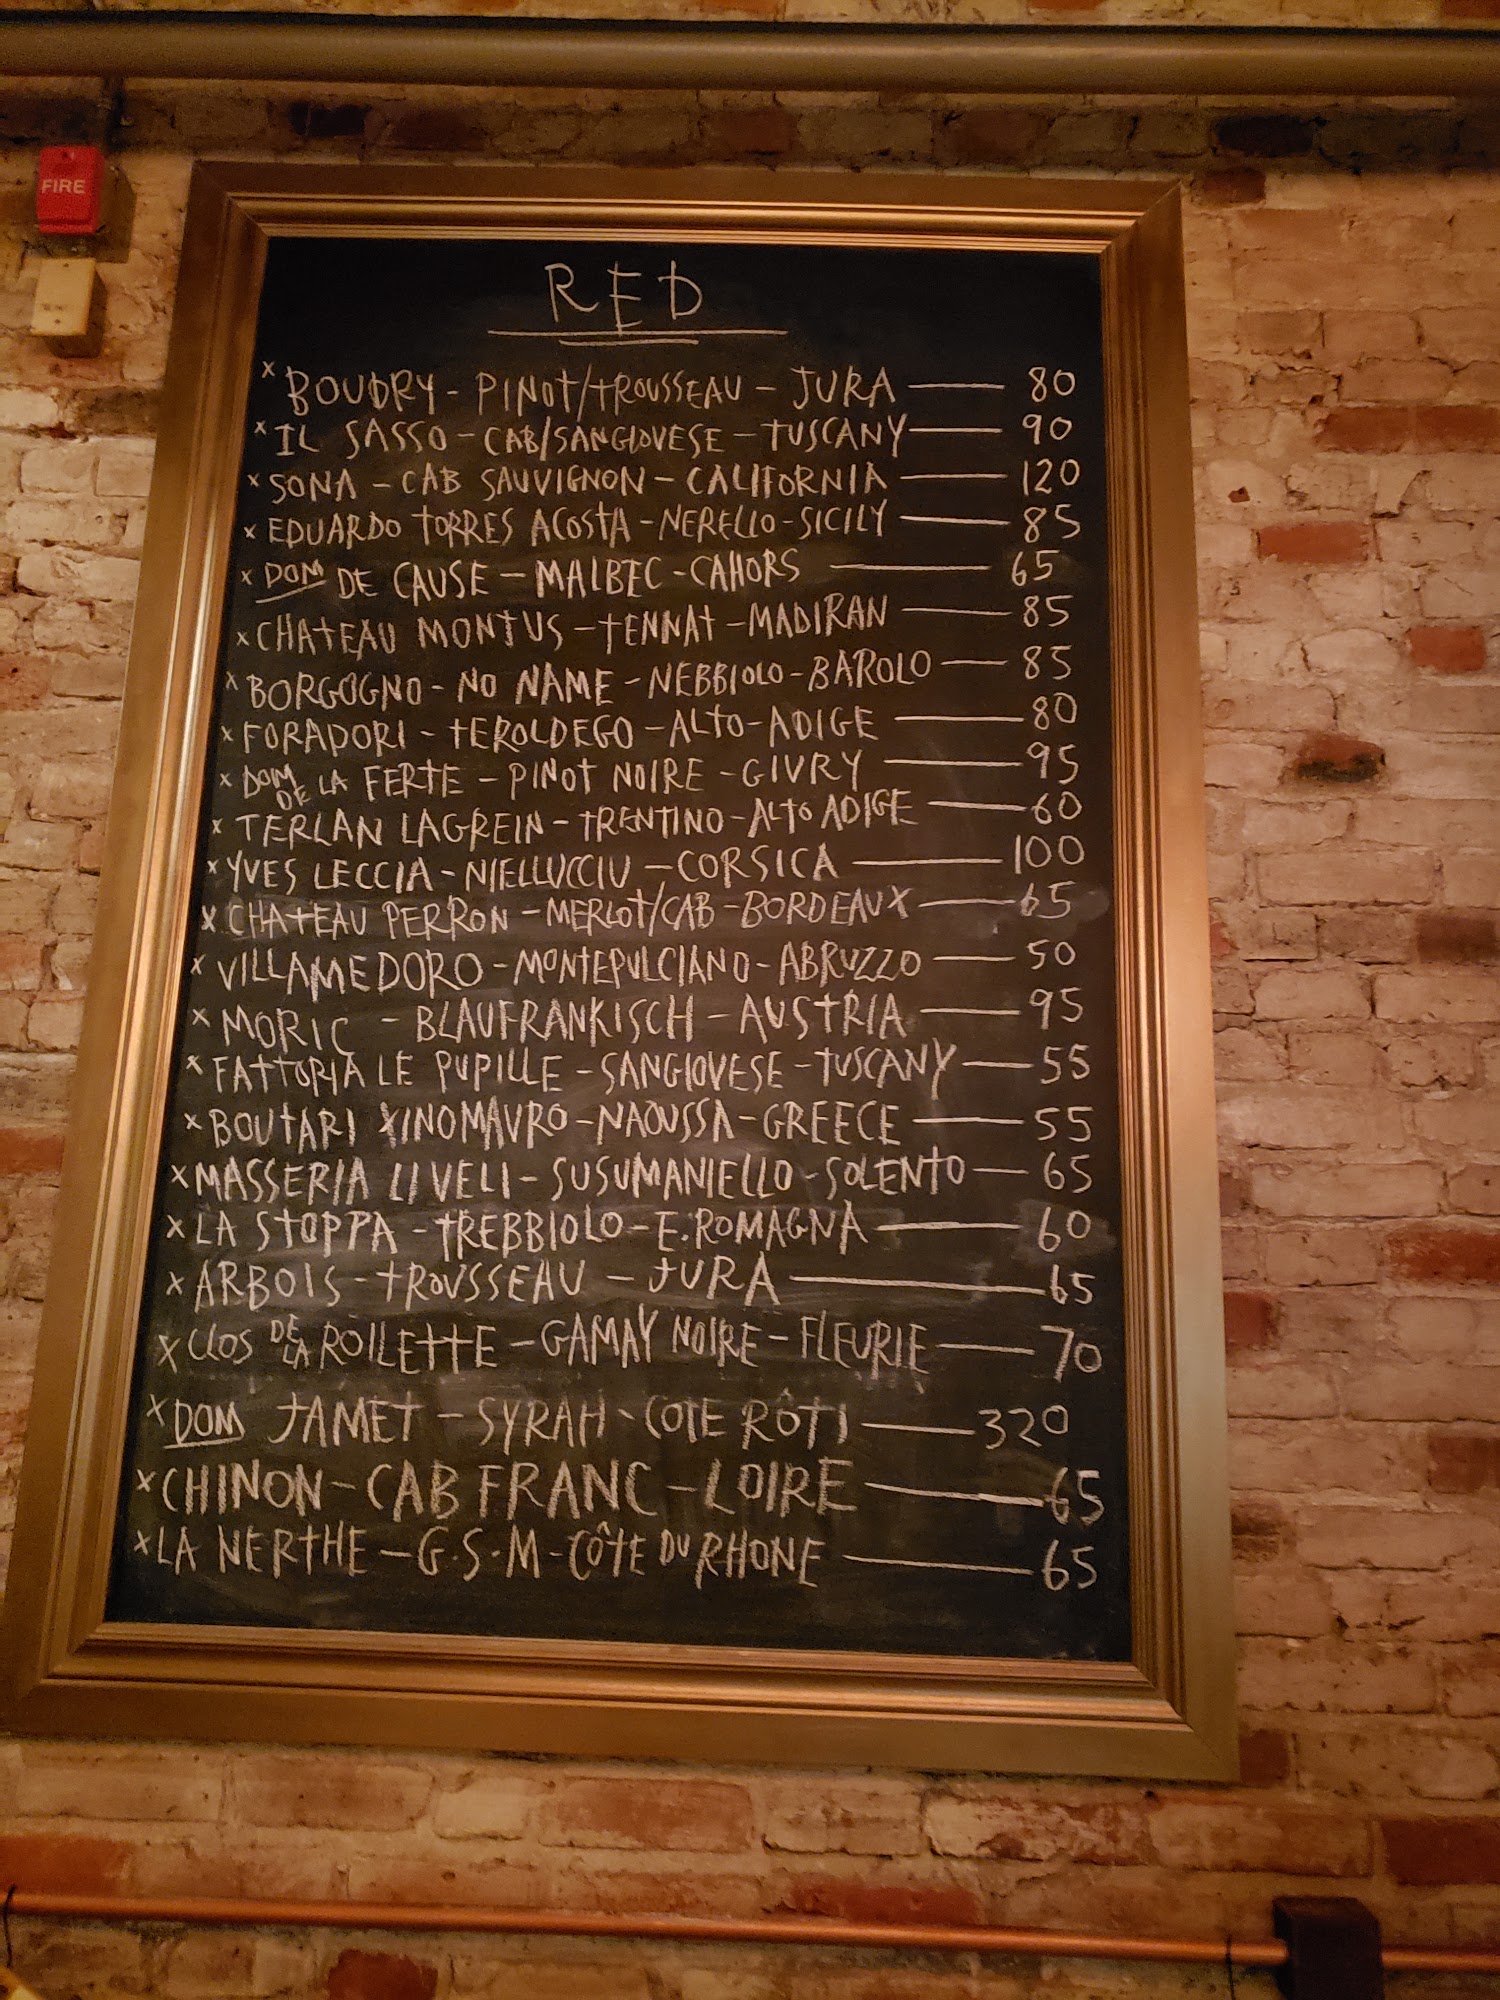 FIRE
RED
x BOUDRY - PINOT/TROUSSEAU - JURA — 80
x IL SASSO - CAB/SANGIOVESE - TUSCANY — 90
x SONA - CAB SAUVIGNON - CALIFORNIA — 120
x EDUARDO TORRES ACOSTA - NERELLO - SICILY — 85
x DOM DE CAUSE - MALBEC - CAHORS — 65
x CHATEAU MONTUS - TENNAT - MADIRAN — 85
x BORGOGNO - NO NAME - NEBBIOLO - BAROLO — 85
x FORADORI - TEROLDEGO - ALTO-ADIGE — 80
x DOM DE LA FERTE - PINOT NOIRE - GIVRY — 95
x TERLAN LAGREIN - TRENTINO - ALTO ADIGE — 60
x YVES LECCIA - NIELLUCCIU - CORSICA — 100
x CHATEAU PERRON - MERLOT/CAB - BORDEAUX — 65
x VILLAMEDORO - MONTEPULCIANO - ABRUZZO — 50
x MORIC - BLAUFRANKISCH - AUSTRIA — 95
x FATTORIA LE PUPILLE - SANGIOVESE - TUSCANY — 55
x BOUTARI XINOMAVRO - NAOUSSA - GREECE — 55
x MASSERIA LI VELI - SUSUMANIELLO - SOLENTO — 65
x LA STOPPA - TREBBIOLO - E. ROMAGNA — 60
x ARBOIS - TROUSSEAU - JURA — 65
x CLOS DE LA ROILETTE - GAMAY NOIRE - FLEURIE — 70
x DOM JAMET - SYRAH - COTE RÔTI — 320
x CHINON - CAB FRANC - LOIRE — 65
x LA NERTHE - G.S.M - CÔTE DU RHONE — 65